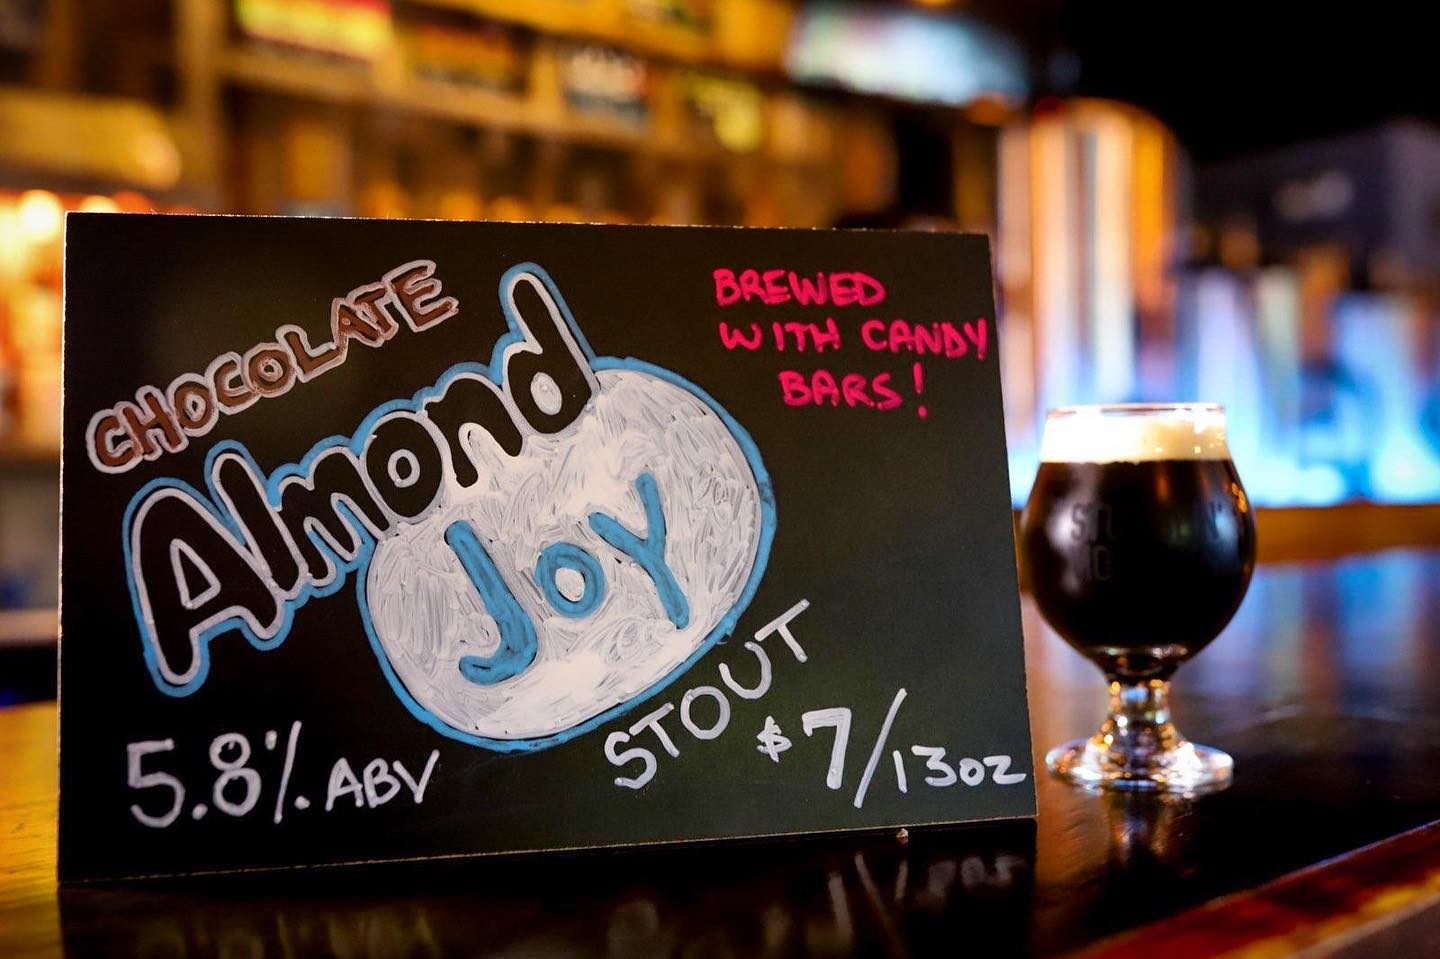 CHOCOLATE
Almond
JOY
STOUT
BREWED
WITH CANDY
BARS!
5.8% ABV
$7/13oz